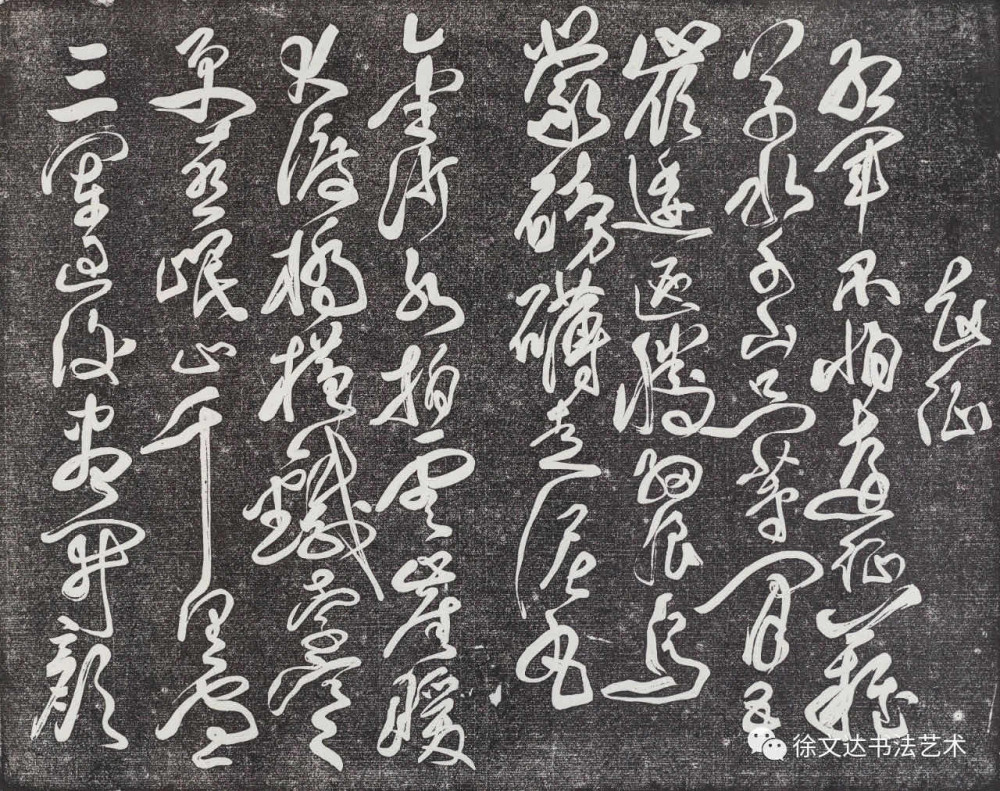 長征
紅軍不怕遠征難
萬水千山只等閑五
嶺逶迤騰細浪烏
蒙磅礴走泥丸
金沙水拍雲崖暖
大渡橋橫鐵索寒
更喜岷山千里雪
三軍過後盡開顏
徐文达书法艺术